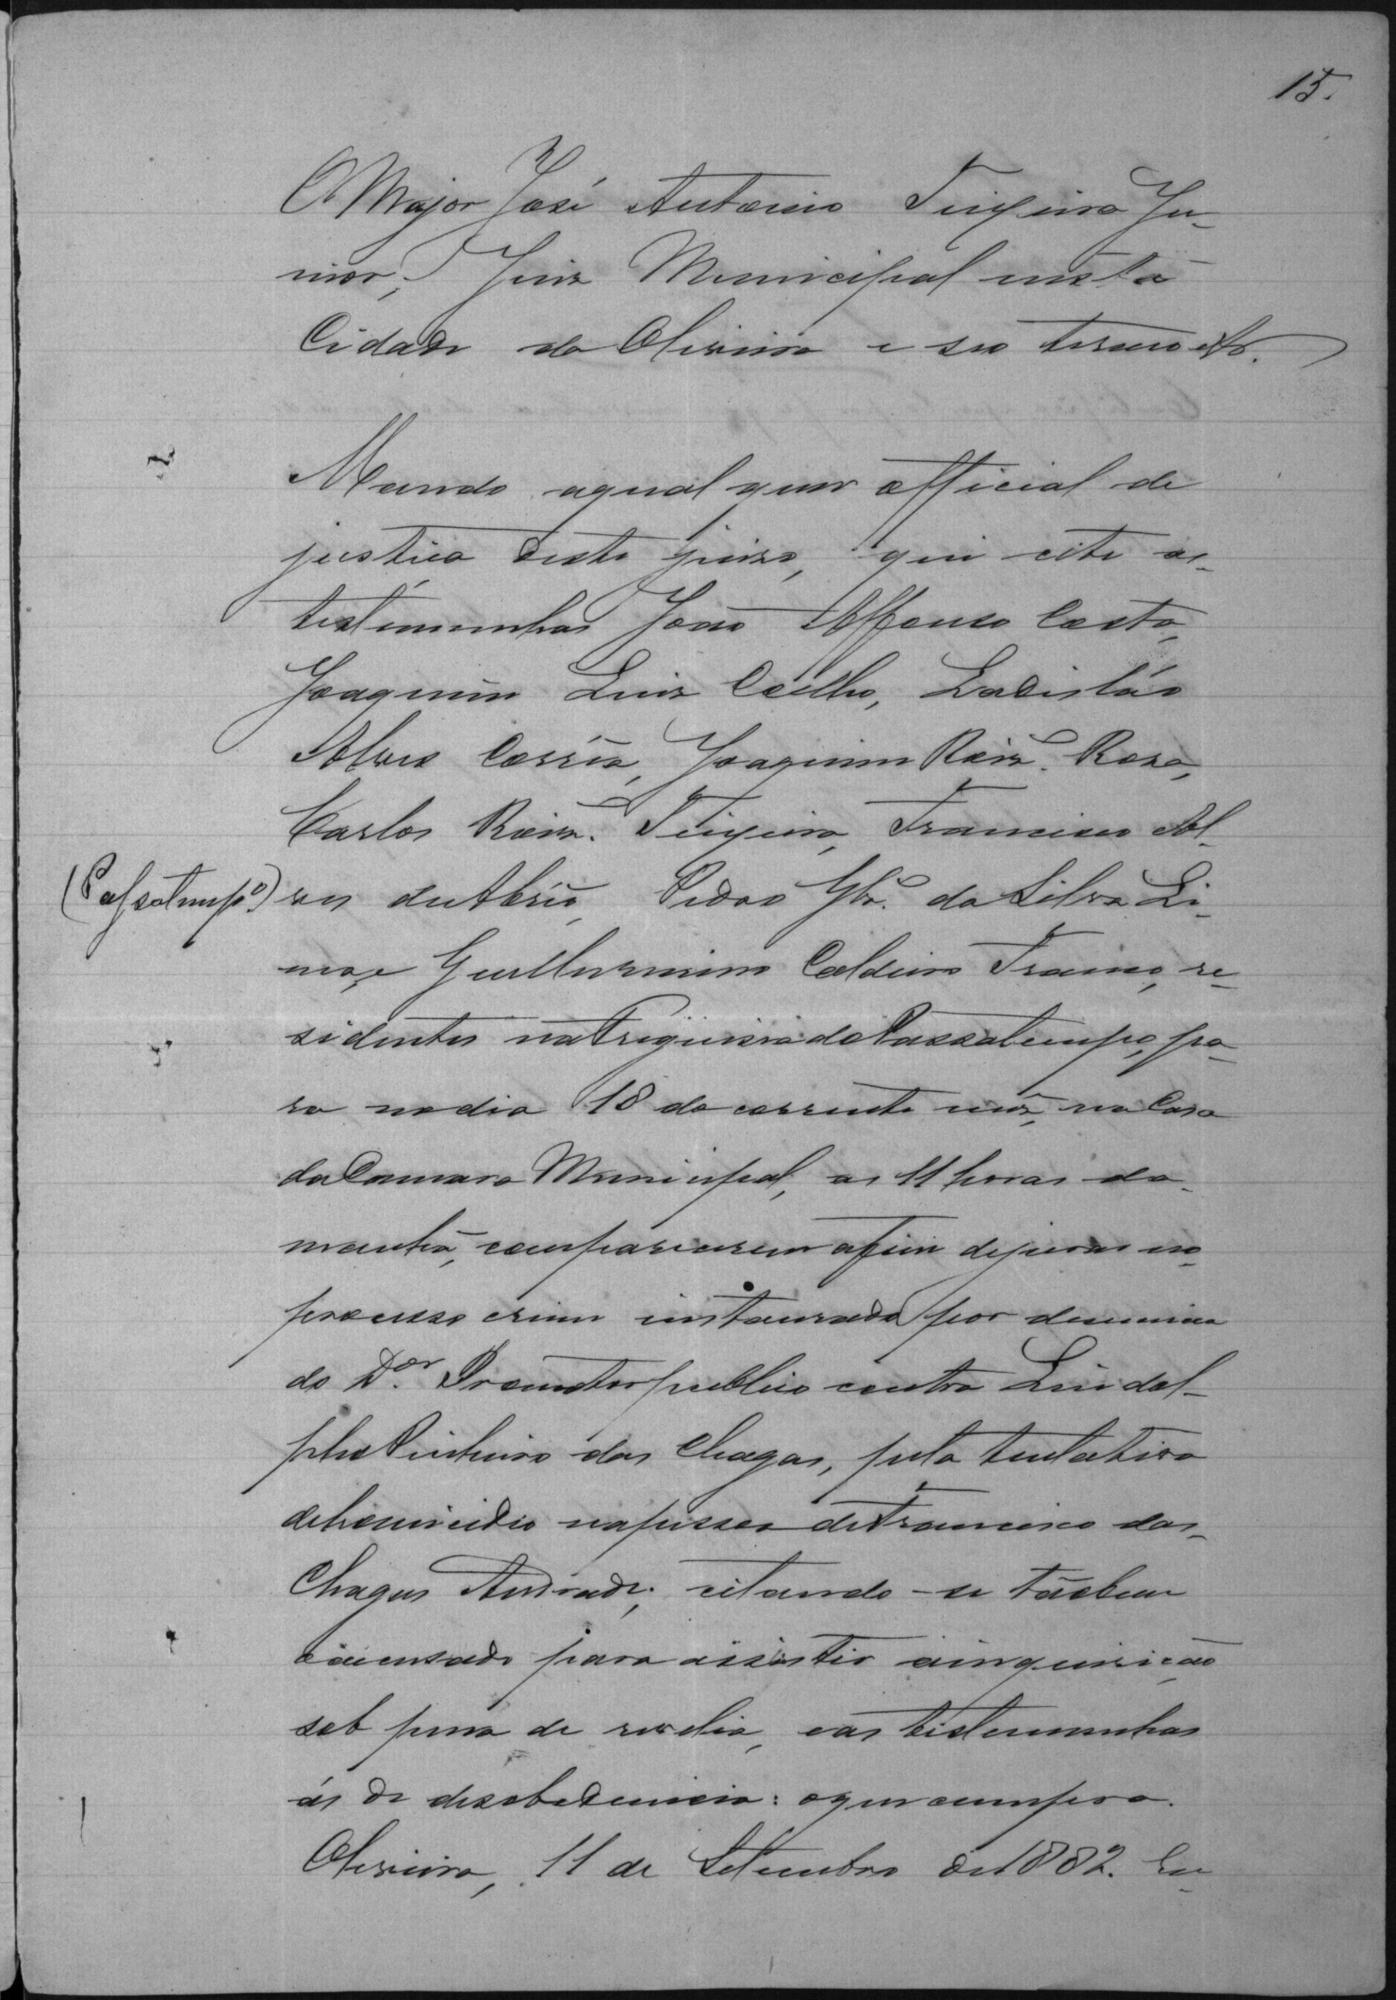 15.
O Major José Antonio Teixeira Ju-
nior, Juiz Municipal nesta
Cidade da Oliveira e seo termo etc.
Mando aqual quer official de
justiça deste juizo, que cite as
testemunhas João Affonso Costa,
Joaquim Luiz Coelho, Ladisláo
Alves Corrêa, Joaquim Roiz. Rosa,
Carlos Roiz. Teixeira, Francisco Al-
(Passatempo) ves de Abrêo, Pedro da Silva Li-
ma, e Guilhermino Caldeira Franco, re-
sidentes na Freguesia do Passatempo, pa-
ra no dia 18 do corrente mez, na Casa
da Camara Municipal, as 11 horas da
manhã, comparecerem afim de jurar no
processo crime instaurado por denuncia
do Dor. Promotor publico contra Lindol-
pho Pinheiro das Chagas, pela tentativa
de homicidio na pessoa de Francisco das
Chagas Andrade; citando-se tãobem
o accusado para assistir a inquirição
sob pena de revelia, e as testemunhas
ás de desobediencia: o que cumpra.
Oliveira, 11 de Setembro de 1882. Eu